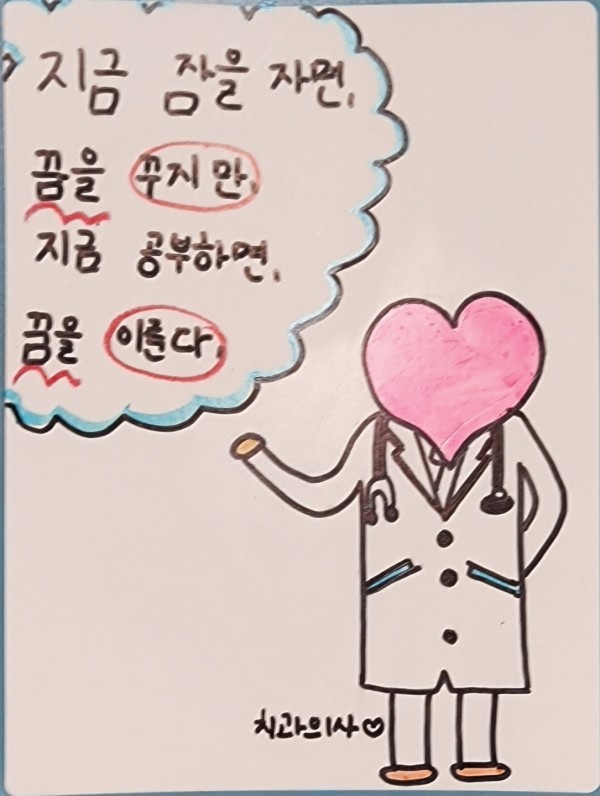 지금 잠을 자면,
꿈을 꾸지만,
지금 공부하면,
꿈을 이룬다.
치과의사♡